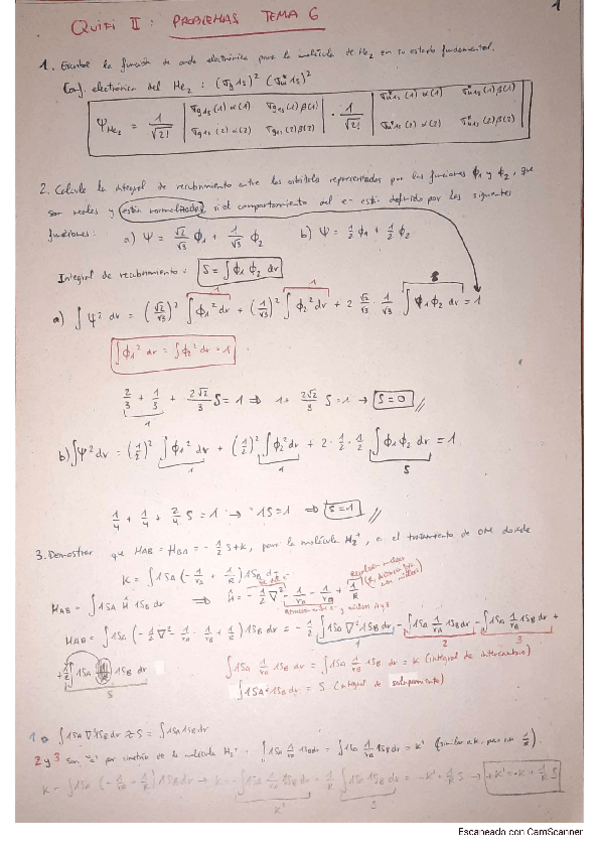 1
QUIFI II: PROBLEMAS TEMA 6
1. Escribir la función de onda electrónica para la molécula de He₂ en su estado fundamental.
Conf. electrónica del He₂ : (σg 1s)² (σu* 1s)²
Ψ He₂ = 1/√2! | σg1s (1) α(1) σg1s (1) β(1) | · 1/√2! | σu*1s (1) α(1) σu*1s (1) β(1) |
| σg1s (2) α(2) σg1s (2) β(2) | | σu*1s (2) α(2) σu*1s (2) β(2) |
2. Calcule la integral de recubrimiento entre los orbitales representados por las funciones ϕ₁ y ϕ₂, que
son reales y están normalizadas, si el comportamiento del e- está definido por las siguientes
funciones: a) Ψ = √2/√3 ϕ₁ + 1/√3 ϕ₂ b) Ψ = 1/2 ϕ₁ + 1/2 ϕ₂
Integral de recubrimiento: S = ∫ϕ₁ ϕ₂ dv
1 1 S
a) ∫Ψ² dv = (√2/√3)² ∫ϕ₁² dv + (1/√3)² ∫ϕ₂² dv + 2 √2/√3 · 1/√3 ∫ϕ₁ϕ₂ dv = 1
∫ϕ₁² dv = ∫ϕ₂² dv = 1
2/3 + 1/3 + 2√2/3 S = 1 ⇒ 1 + 2√2/3 S = 1 → S=0
1
b) ∫Ψ² dv = (1/2)² ∫ϕ₁² dv + (1/2)² ∫ϕ₂² dv + 2 · 1/2 · 1/2 ∫ϕ₁ϕ₂ dv = 1
1 1 S
1/4 + 1/4 + 2/4 S = 1 → 1S=1 ⇒ S=1
3. Demostrar que HAB = HBA = - 1/2 S + K, para la molécula H₂⁺, en el tratamiento de OM donde
K = ∫1SA (- 1/rB + 1/R) 1SB dv
HAB = ∫1SA Ĥ 1SB dv ⇒ Ĥ = - 1/2 ∇² - 1/rA - 1/rB + 1/R
HAB = ∫1SA (- 1/2 ∇² - 1/rA - 1/rB + 1/R) 1SB dv = - 1/2 ∫1SA ∇² 1SB dv - ∫1SA 1/rA 1SB dv - ∫1SA 1/rB 1SB dv +
1 2 3
+ ∫1SA 1/R 1SB dv
S
∫1SA 1/rA 1SB dv = ∫1SA 1/rB 1SB dv = K (integral de intercambio)
∫1SA · 1SB dv = S (integral de solapamiento)
1 ∫1SA ∇ 1SB dv ≈ S = ∫1SA 1SB dv
2 y 3 son "=" por simetría de la molécula H₂⁺ · ∫1SA 1/rA 1SB dv = ∫1SA 1/rB 1SB dv = K' (similar a K, pero sin 1/R).
K = ∫1SA (- 1/rB + 1/R) 1SB dv → K = - ∫1SA 1/rB 1SB dv + 1/R ∫1SA 1SB dv = -K' + 1/R S → +K' = -K + 1/R S
K' S
Escaneado con CamScanner